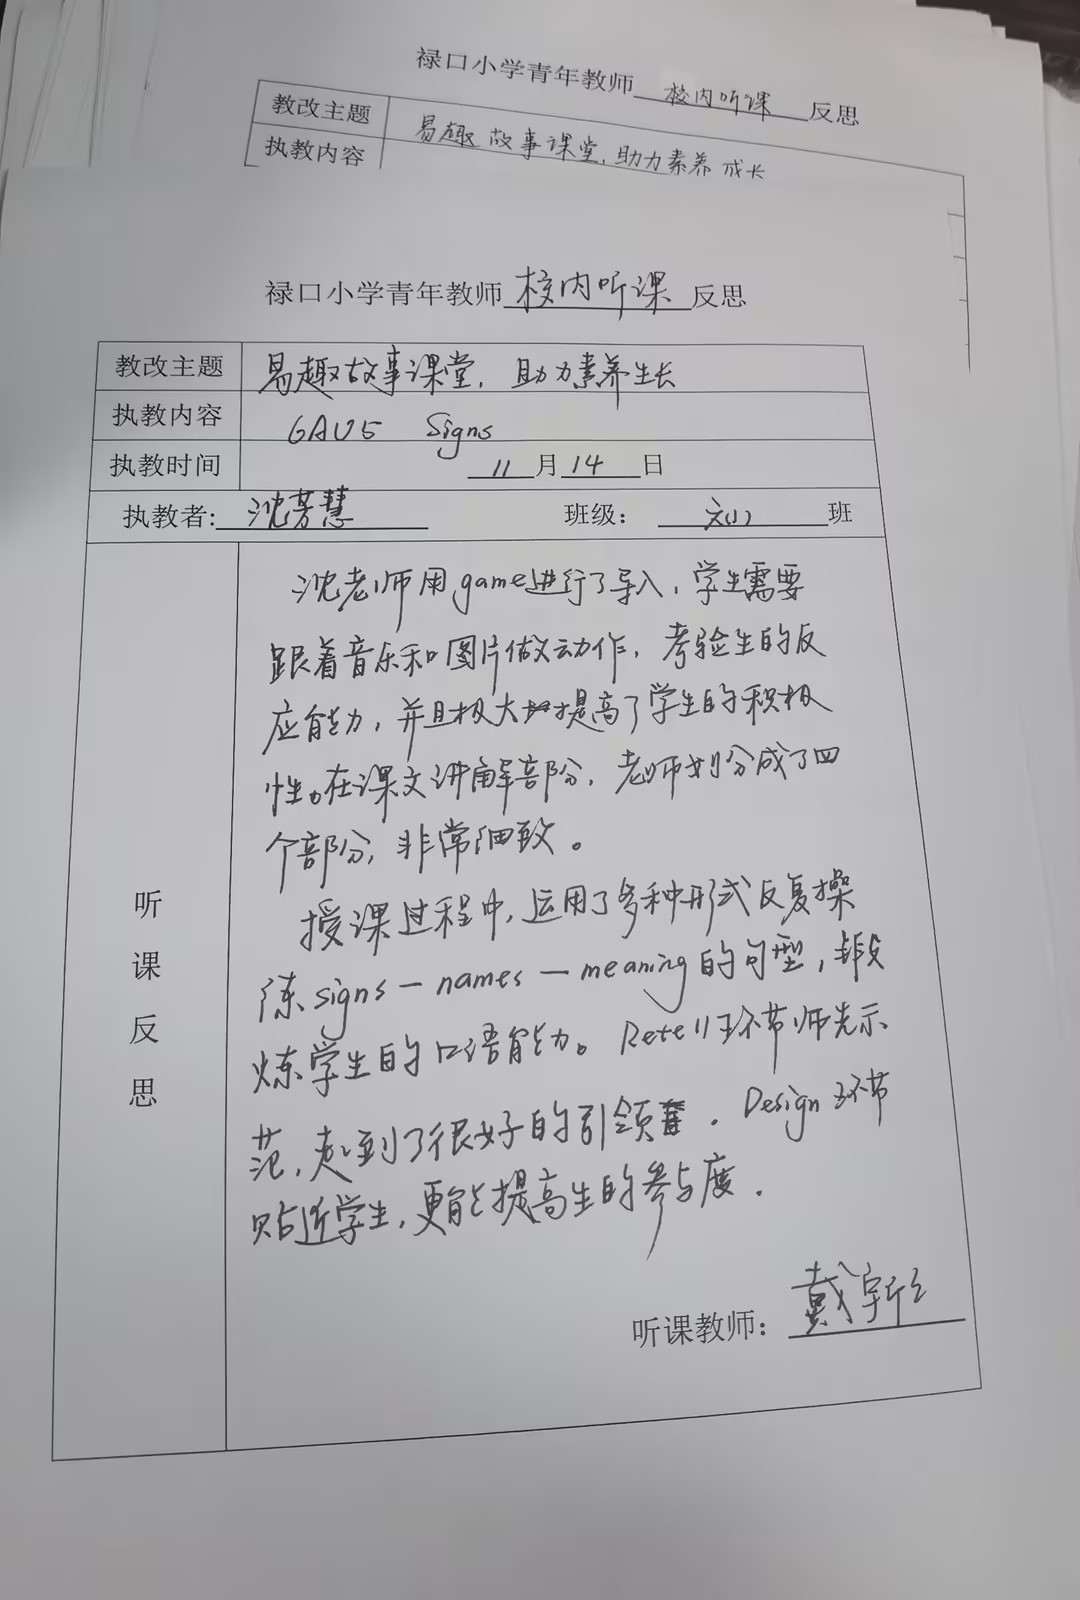 禄口小学青年教师校内听课反思
教改主题 易趣故事课堂,助力素养成长
执教内容
禄口小学青年教师校内听课反思
教改主题 易趣故事课堂,助力素养生长
执教内容 6AU5 Signs
执教时间 11月14日
执教者:沈芳慧 班级: 班
听课反思
沈老师用game进行了导入,学生需要
跟着音乐和图片做动作,考验生的反
应能力,并且极大地提高了学生的积极
性。在课文讲解部分,老师划分成了四
个部分,非常细致。
授课过程中,运用了多种形式反复操
练signs—names—meaning的句型,锻
炼学生的口语能力。Retell环节师先示
范,起到了很好的引领。Design环节
贴近学生,更能提高生的参与度.
听课教师:戴